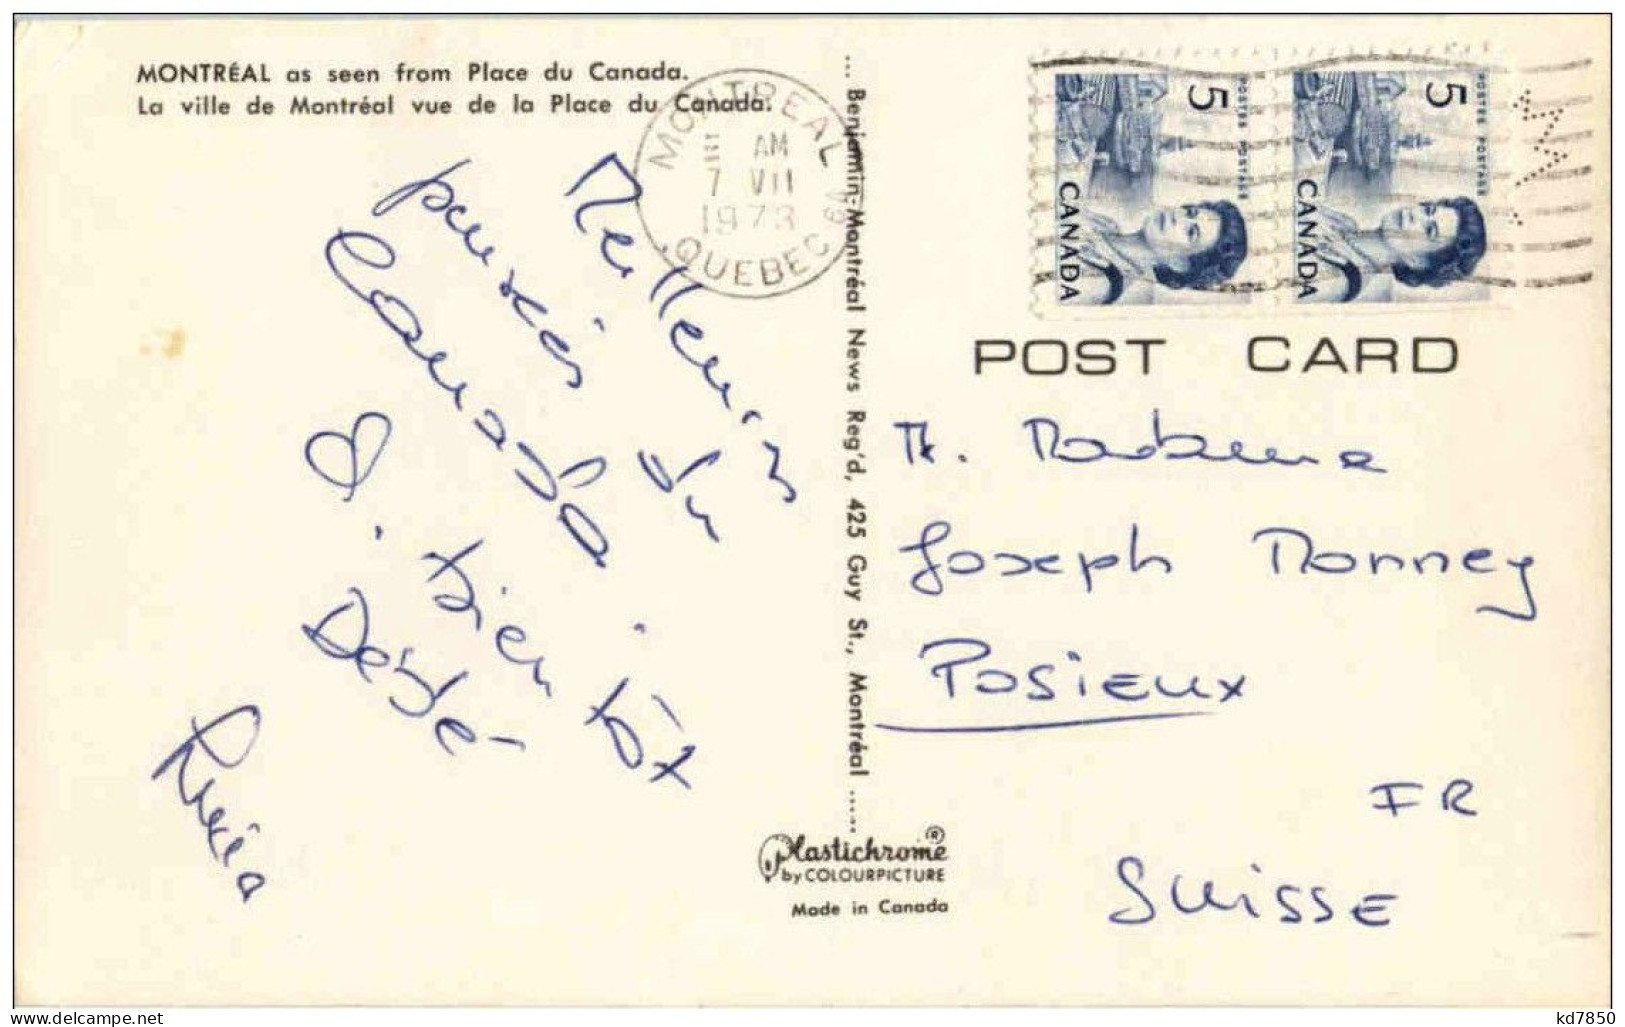 MONTRÉAL as seen from Place du Canada.
La ville de Montréal vue de la Place du Canada.
MONTREAL
AM
7 VII
1973
QUEBEC
Meilleures
pensées du
Canada
bientôt
Rosina
... Benjamin-Montréal News Reg'd, 425 Guy St., Montréal .....
5
POSTES POSTAGE
CANADA
5
POSTES POSTAGE
CANADA
POST CARD
M. Madame
Joseph Monney
Posieux
FR
SUISSE
Plastichrome®
by COLOURPICTURE
Made in Canada
kd7850